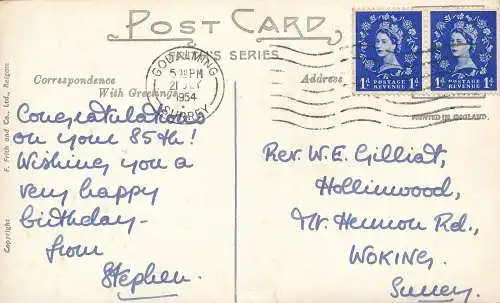 POST CARD
FRITH'S SERIES
Correspondence
With Greetings
Address
GODALMING
5 30 PM
21 JLY
1954
SURREY
1d POSTAGE REVENUE 1d
1d POSTAGE REVENUE 1d
PRINTED IN ENGLAND.
Copyright F. Frith and Co., Ltd., Reigate
Congratulations
on your 85th!
Wishing you a
very happy
birthday-
from
Stephen.
Rev. W.E. Gilliat,
Hollinwood,
Mt. Hermon Rd.,
WOKING,
Surrey.